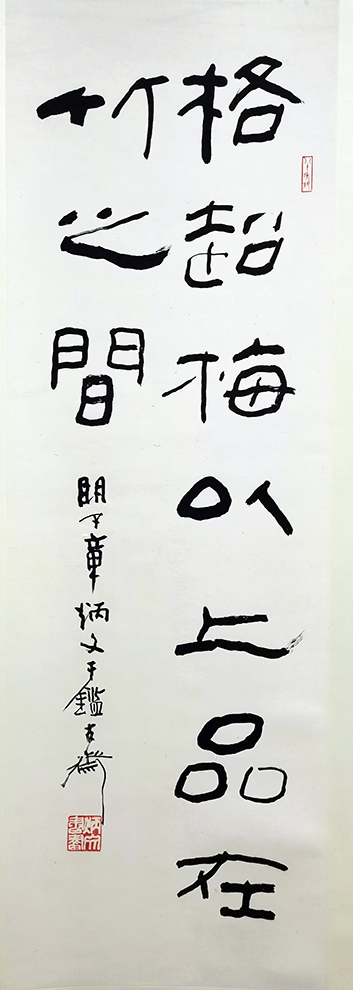 格超梅以上品在
竹之間
章炳文于鑑古齋